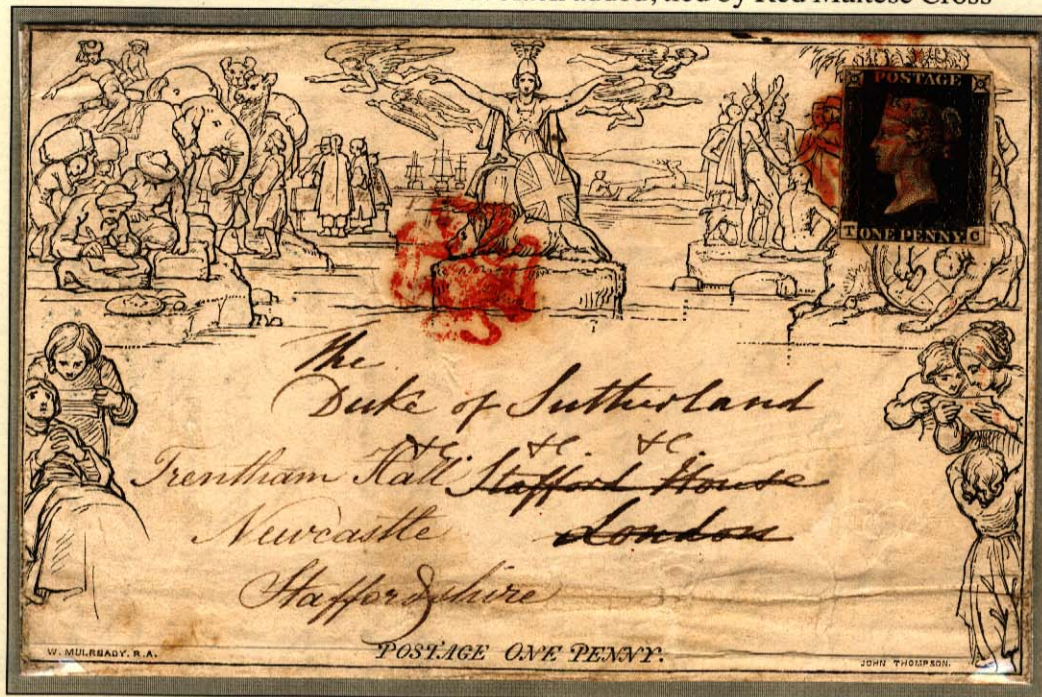 added, tied by Red Maltese Cross
POSTAGE
T ONE PENNY C
The
Duke of Sutherland
&c. &c. &c.
Trentham Hall Stafford House
Newcastle London
Staffordshire
W. MULREADY. R.A.
POSTAGE ONE PENNY.
JOHN THOMPSON.